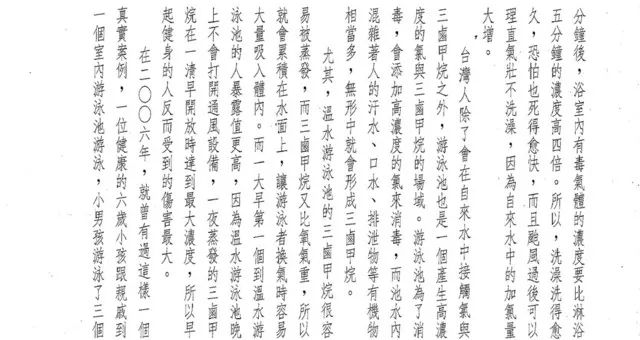 分鐘後，浴室內有毒氣體的濃度要比淋浴
五分鐘的濃度高四倍。所以，洗澡洗得愈
久，恐怕也死得愈快，而且颱風過後可以
理直氣壯不洗澡，因為自來水中的加氯量
大增。
台灣人除了會在自來水中接觸氯與
三鹵甲烷之外，游泳池也是一個產生高濃
度的氯與三鹵甲烷的場域。游泳池為了消
毒，會添加高濃度的氯來消毒，而池水內
混雜著人的汗水、口水、排泄物等有機物
相當多，無形中就會形成三鹵甲烷。
尤其，溫水游泳池的三鹵甲烷很容
易被蒸發，而三鹵甲烷又比氧氣重，所以
就會累積在水面上，讓游泳者換氣時容易
大量吸入體內。而一大早第一個到溫水游
泳池的人暴露值更高，因為溫水游泳池晚
上不會打開通風設備，一夜蒸發的三鹵甲
烷在一清早開放時達到最大濃度，所以早
起健身的人反而受到的傷害最大。
在二〇〇六年，就曾有過這樣一個
真實案例，一位健康的六歲小孩跟親戚到
一個室內游泳池游泳，小男孩游泳了三個